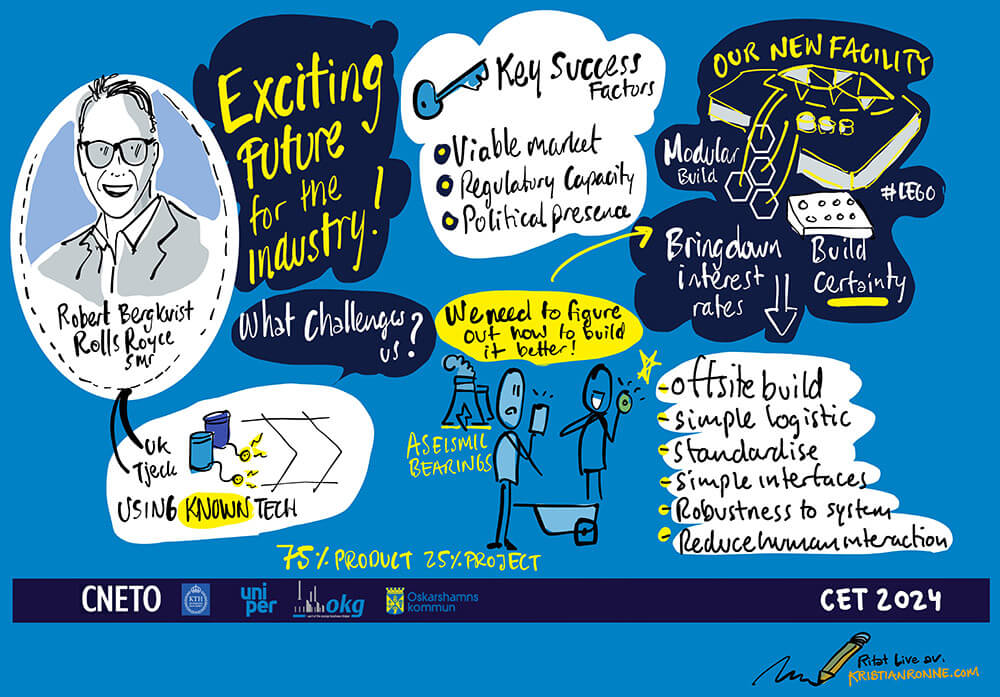 Exciting
Future
for the
industry!
Robert Bergkvist
Rolls Royce
SMR
Key Success
Factors
Viable market
Regulatory Capacity
Political presence
OUR NEW FACILITY
Modular
Build
#LEGO
Bring down
interest
rates
Build
Certainty
What Challenges
us?
We need to figure
out how to build
it better!
ASEISMIC
BEARINGS
UK
Tjeck
USING KNOWN TECH
- offsite build
- simple logistic
- standardise
- simple interfaces
- Robustness to system
- Reduce human interaction
75% PRODUCT 25% PROJECT
CNETO
KTH
uni
per
okg
Oskarshamns
kommun
CET 2024
Ritat Live av.
KRISTIANRONNE.COM